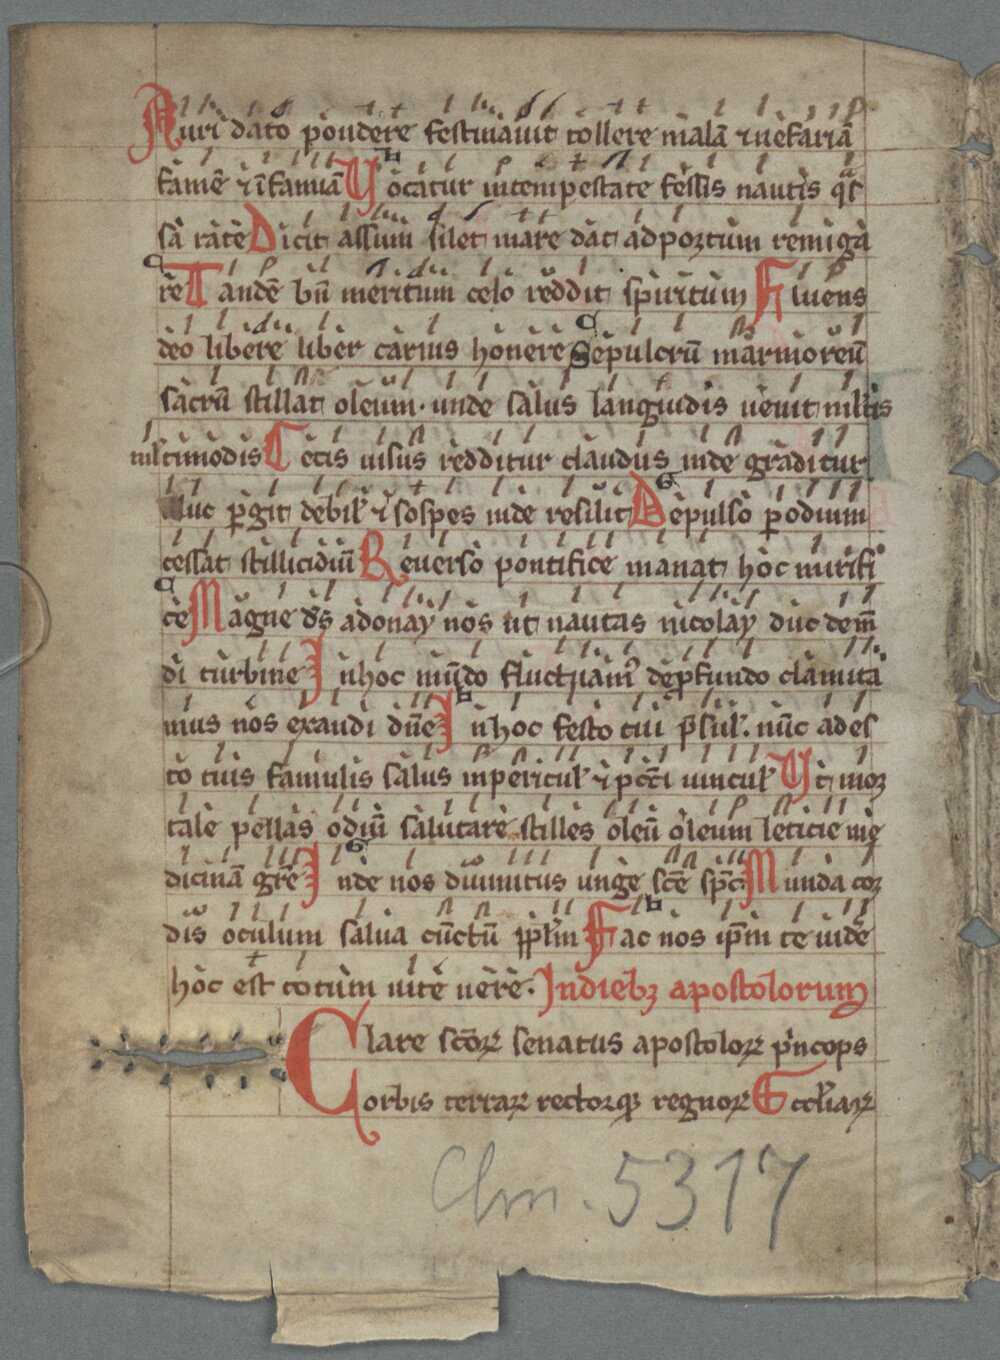 Auri dato pondere festinavit tollere malā ⁊ nefariā
famē ⁊ īfamiā Vocatur intempestate fessis nautis q̄s
sā rate Dicit assum silet mare dat ad portum remiga
re Tandē bn̄ meritum celo reddit spiritum Fluens
deo libere liber carnis honere Sepulcrū marmoreū
sacrū stillat oleum. unde salus languidis uenit
multimodis Cecis uisus redditur claudus inde graditur
Huc ꝑgit debil' ⁊ sospes inde resiliit Depulso ꝑ odium
cessat stillicidiū Reuerso pontifice manat hoc mirifi
ce Magne ds̄ adonay nos ut nautas nicolay duc de m̄
di turbine In hoc mūdo fluctuam' de ꝓfundo clamita
mus nos exaudi dn̄e In hoc festo tui p̄sul'. nūc ades
to tuis famulis salus in pericul' ⁊ pcc̄i uincul' Vt mor
tale pellas odiū salutare stilles oleū oleum leticie me
dicinā gr̄e Inde nos diuinitus unge sc̄e sp̄c Munda cor
dis oculum salua cūctū pp̄l'm Fac nos ip̄m te uidē
hoc est totum uite uere. In dieb; apostolorum
Clare scōꝝ senatus apostoloꝝ p'nceps
orbis terraꝝ rectorq; regnoꝝ Eccl'iaꝝ
Clm. 5317